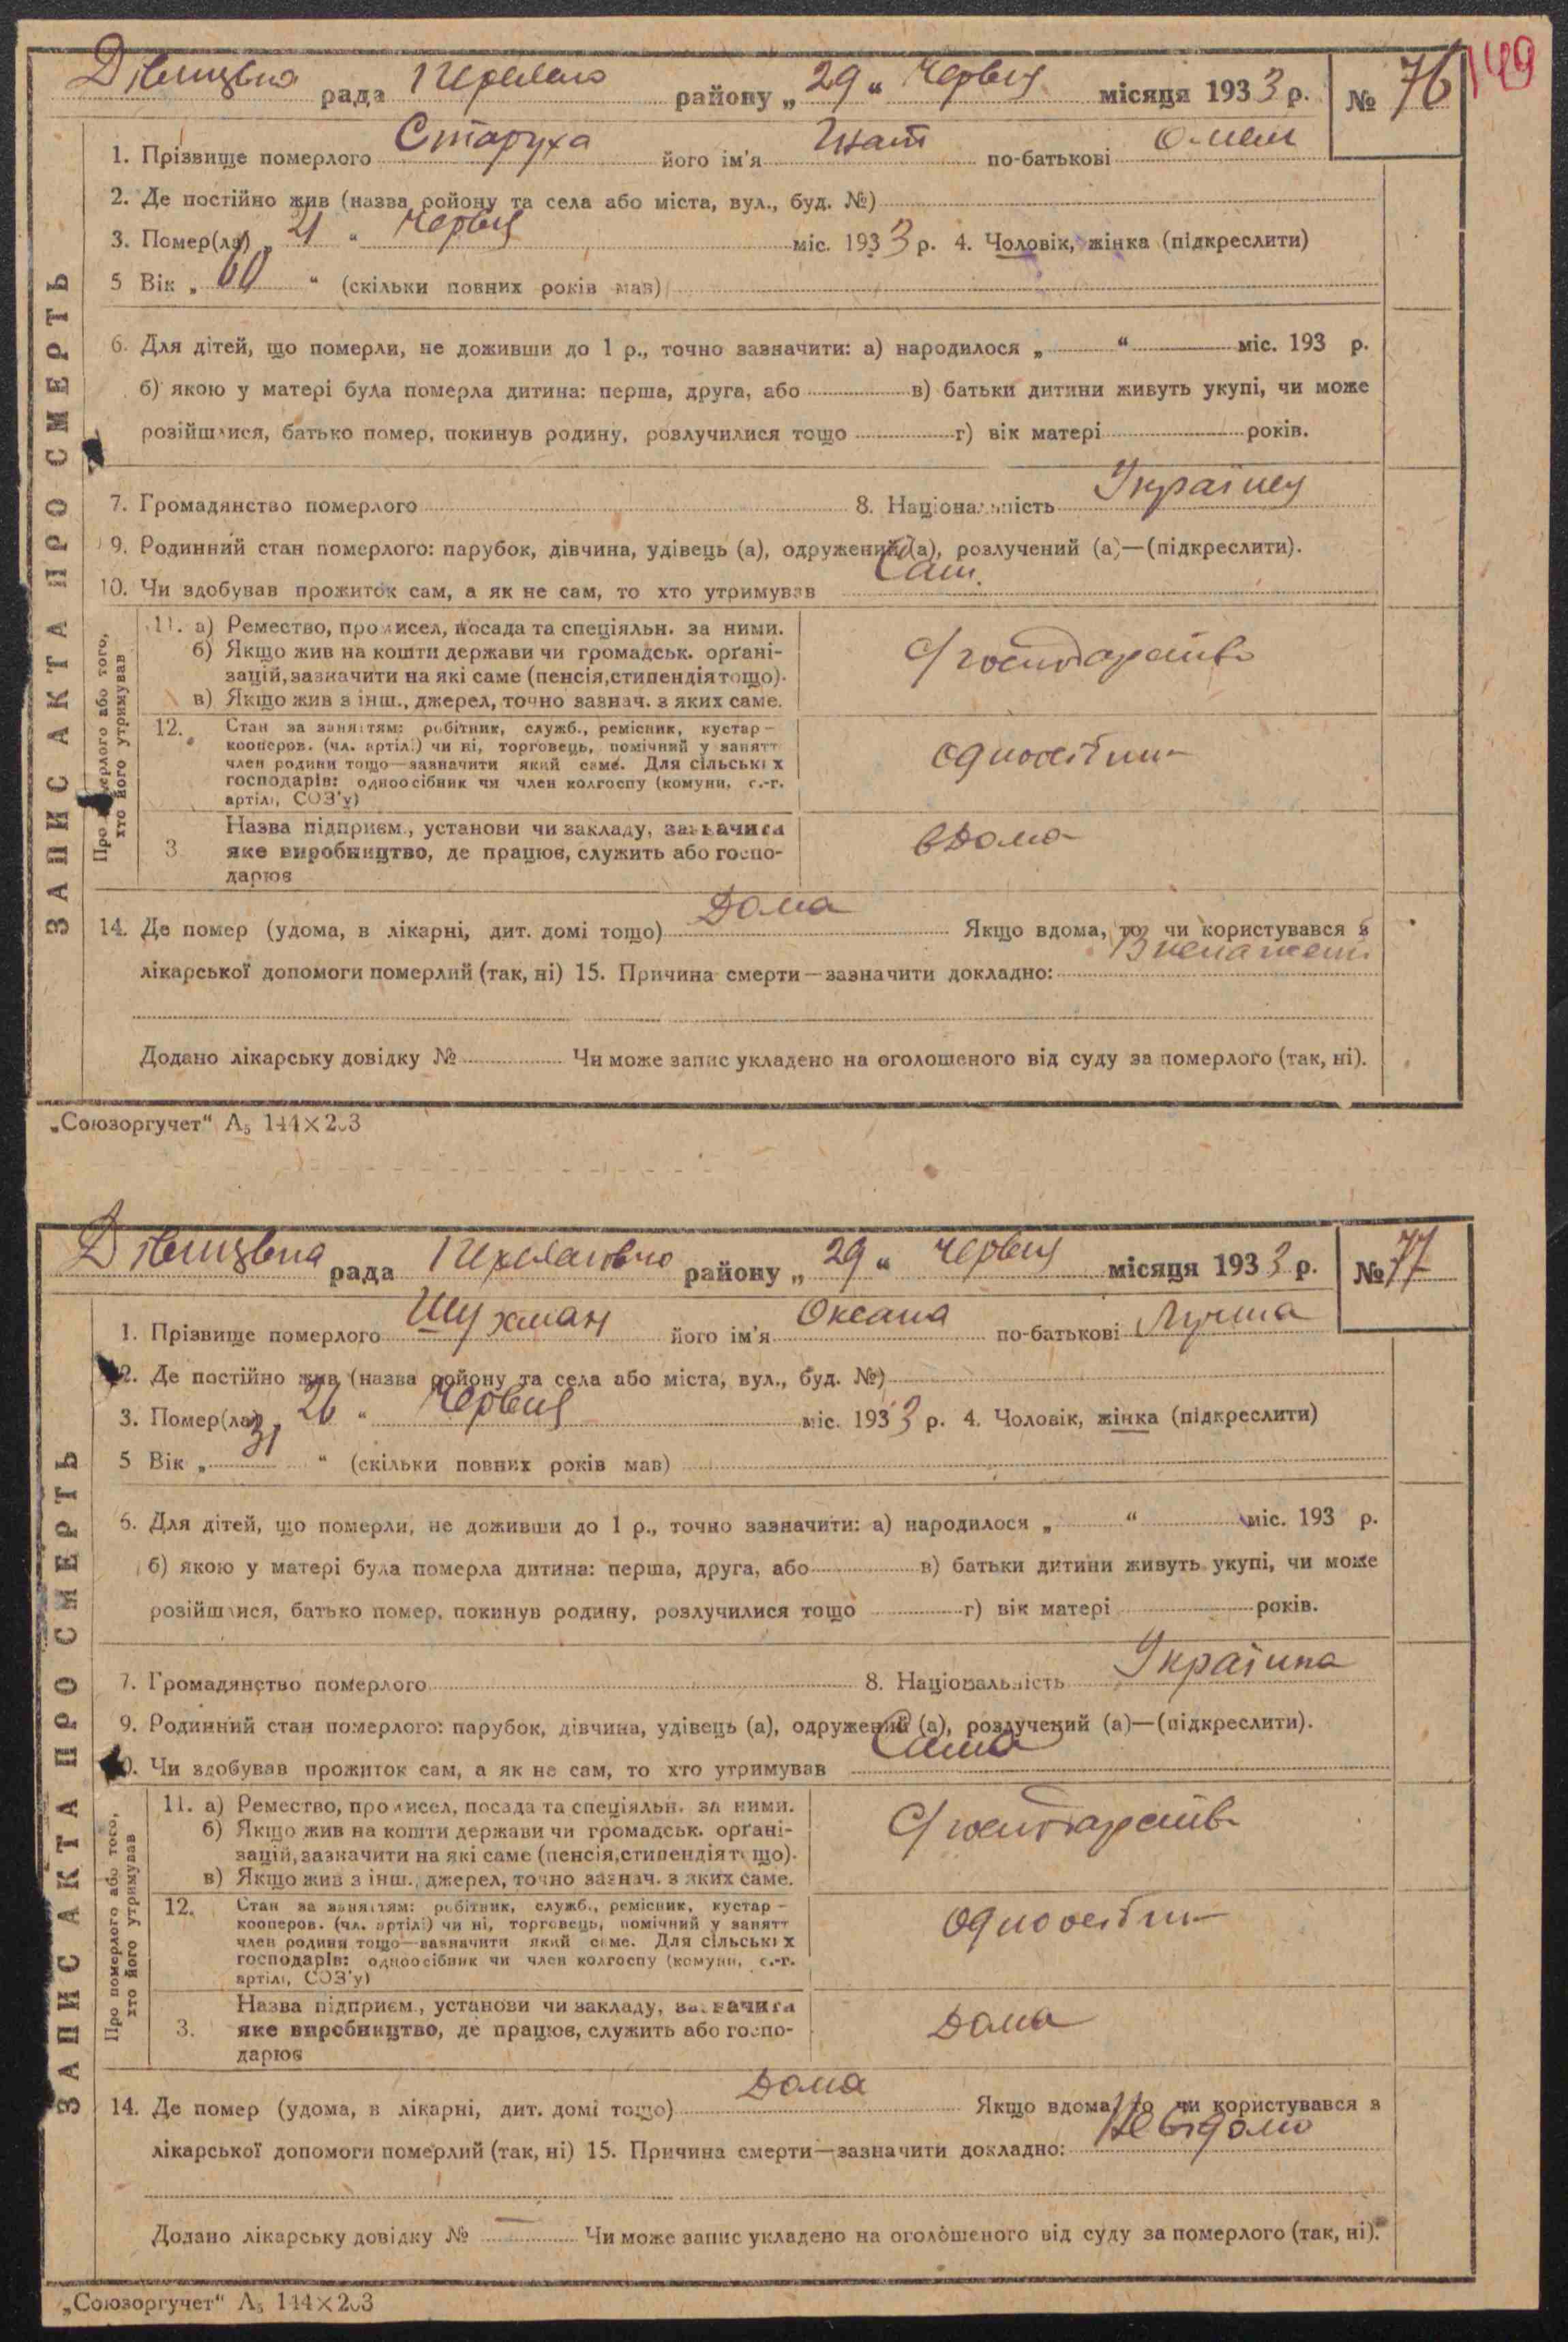 149
Дівицька рада Переяслав району „29“ Червня місяця 1933 р. № 76
1. Прізвище померлого Старуха його ім'я Гнат по-батькові Омел
2. Де постійно жив (назва ройону та села або міста, вул., буд. №)
3. Помер(ла) „21“ Червня міс. 1933 р. 4. Чоловік, жінка (підкреслити)
5 Вік „60“ (скільки повних років мав)
6. Для дітей, що померли, не доживши до 1 р., точно зазначити: а) народилося „ “ міс. 193 р.
б) якою у матері була померла дитина: перша, друга, або в) батьки дитини живуть укупі, чи може
розійшлися, батько помер, покинув родину, розлучилися тощо г) вік матері років.
7. Громадянство померлого 8. Національність Українец
9. Родинний стан померлого: парубок, дівчина, удівець (а), одружений (а), розлучений (а)—(підкреслити).
10. Чи здобував прожиток сам, а як не сам, то хто утримував Сам.
11. а) Ремество, промисел, посада та спеціяльн. за ними.
б) Якщо жив на кошти держави чи громадськ. орґані-
зацій, зазначити на які саме (пенсія, стипендія тощо).
в) Якщо жив з інш., джерел, точно зазнач. з яких саме.
С/господарство
12. Стан за заняттям: робітник, служб., ремісник, кустар—
кооперов. (чл. артілі) чи ні, торговець, помічний у занятт
член родини тощо—зазначити який саме. Для сільських
господарів: одноосібник чи член колгоспу (комуни, с.-г.
артілі, СОЗ'у)
одноосібник
3 Назва підприєм., установи чи закладу, зазначити
яке виробництво, де працює, служить або госпо-
дарює
вдома
14. Де помер (удома, в лікарні, дит. домі тощо) Дома Якщо вдома, то чи користувався з
лікарської допомоги померлий (так, ні) 15. Причина смерти—зазначити докладно: Виснаження
Додано лікарську довідку № Чи може запис укладено на оголошеного від суду за померлого (так, ні).
ЗАПИС АКТА ПРО СМЕРТЬ
Про померлого або того,
хто його утримував
„Союзоргучет“ А5 144×203
Дівицька рада Переяславсько району „29“ Червня місяця 1933 р. № 77
1. Прізвище померлого Шухман його ім'я Оксана по-батькові
2. Де постійно жив (назва ройону та села або міста, вул., буд. №)
3. Помер(ла) „26“ Червня міс. 1933 р. 4. Чоловік, жінка (підкреслити)
5 Вік „31“ (скільки повних років мав)
6. Для дітей, що померли, не доживши до 1 р., точно зазначити: а) народилося „ “ міс. 193 р.
б) якою у матері була померла дитина: перша, друга, або в) батьки дитини живуть укупі, чи може
розійшлися, батько помер, покинув родину, розлучилися тощо г) вік матері років.
7. Громадянство померлого 8. Національність Українка
9. Родинний стан померлого: парубок, дівчина, удівець (а), одружений (а), розлучений (а)—(підкреслити).
10. Чи здобував прожиток сам, а як не сам, то хто утримував Сама
11. а) Ремество, промисел, посада та спеціяльн. за ними.
б) Якщо жив на кошти держави чи громадськ. орґані-
зацій, зазначити на які саме (пенсія, стипендія тощо).
в) Якщо жив з інш., джерел, точно зазнач. з яких саме.
С/господарство
12. Стан за заняттям: робітник, служб., ремісник, кустар—
кооперов. (чл. артілі) чи ні, торговець, помічний у занятт
член родини тощо—зазначити який саме. Для сільських
господарів: одноосібник чи член колгоспу (комуни, с.-г.
артілі, СОЗ'у)
одноосібник
3. Назва підприєм., установи чи закладу, зазначити
яке виробництво, де працює, служить або госпо-
дарює
Дома
14. Де помер (удома, в лікарні, дит. домі тощо) Дома Якщо вдома, то чи користувався з
лікарської допомоги померлий (так, ні) 15. Причина смерти—зазначити докладно: Невідомо
Додано лікарську довідку № — Чи може запис укладено на оголошеного від суду за померлого (так, ні).
ЗАПИС АКТА ПРО СМЕРТЬ
Про померлого або того,
хто його утримував
„Союзоргучет“ А5 144×203